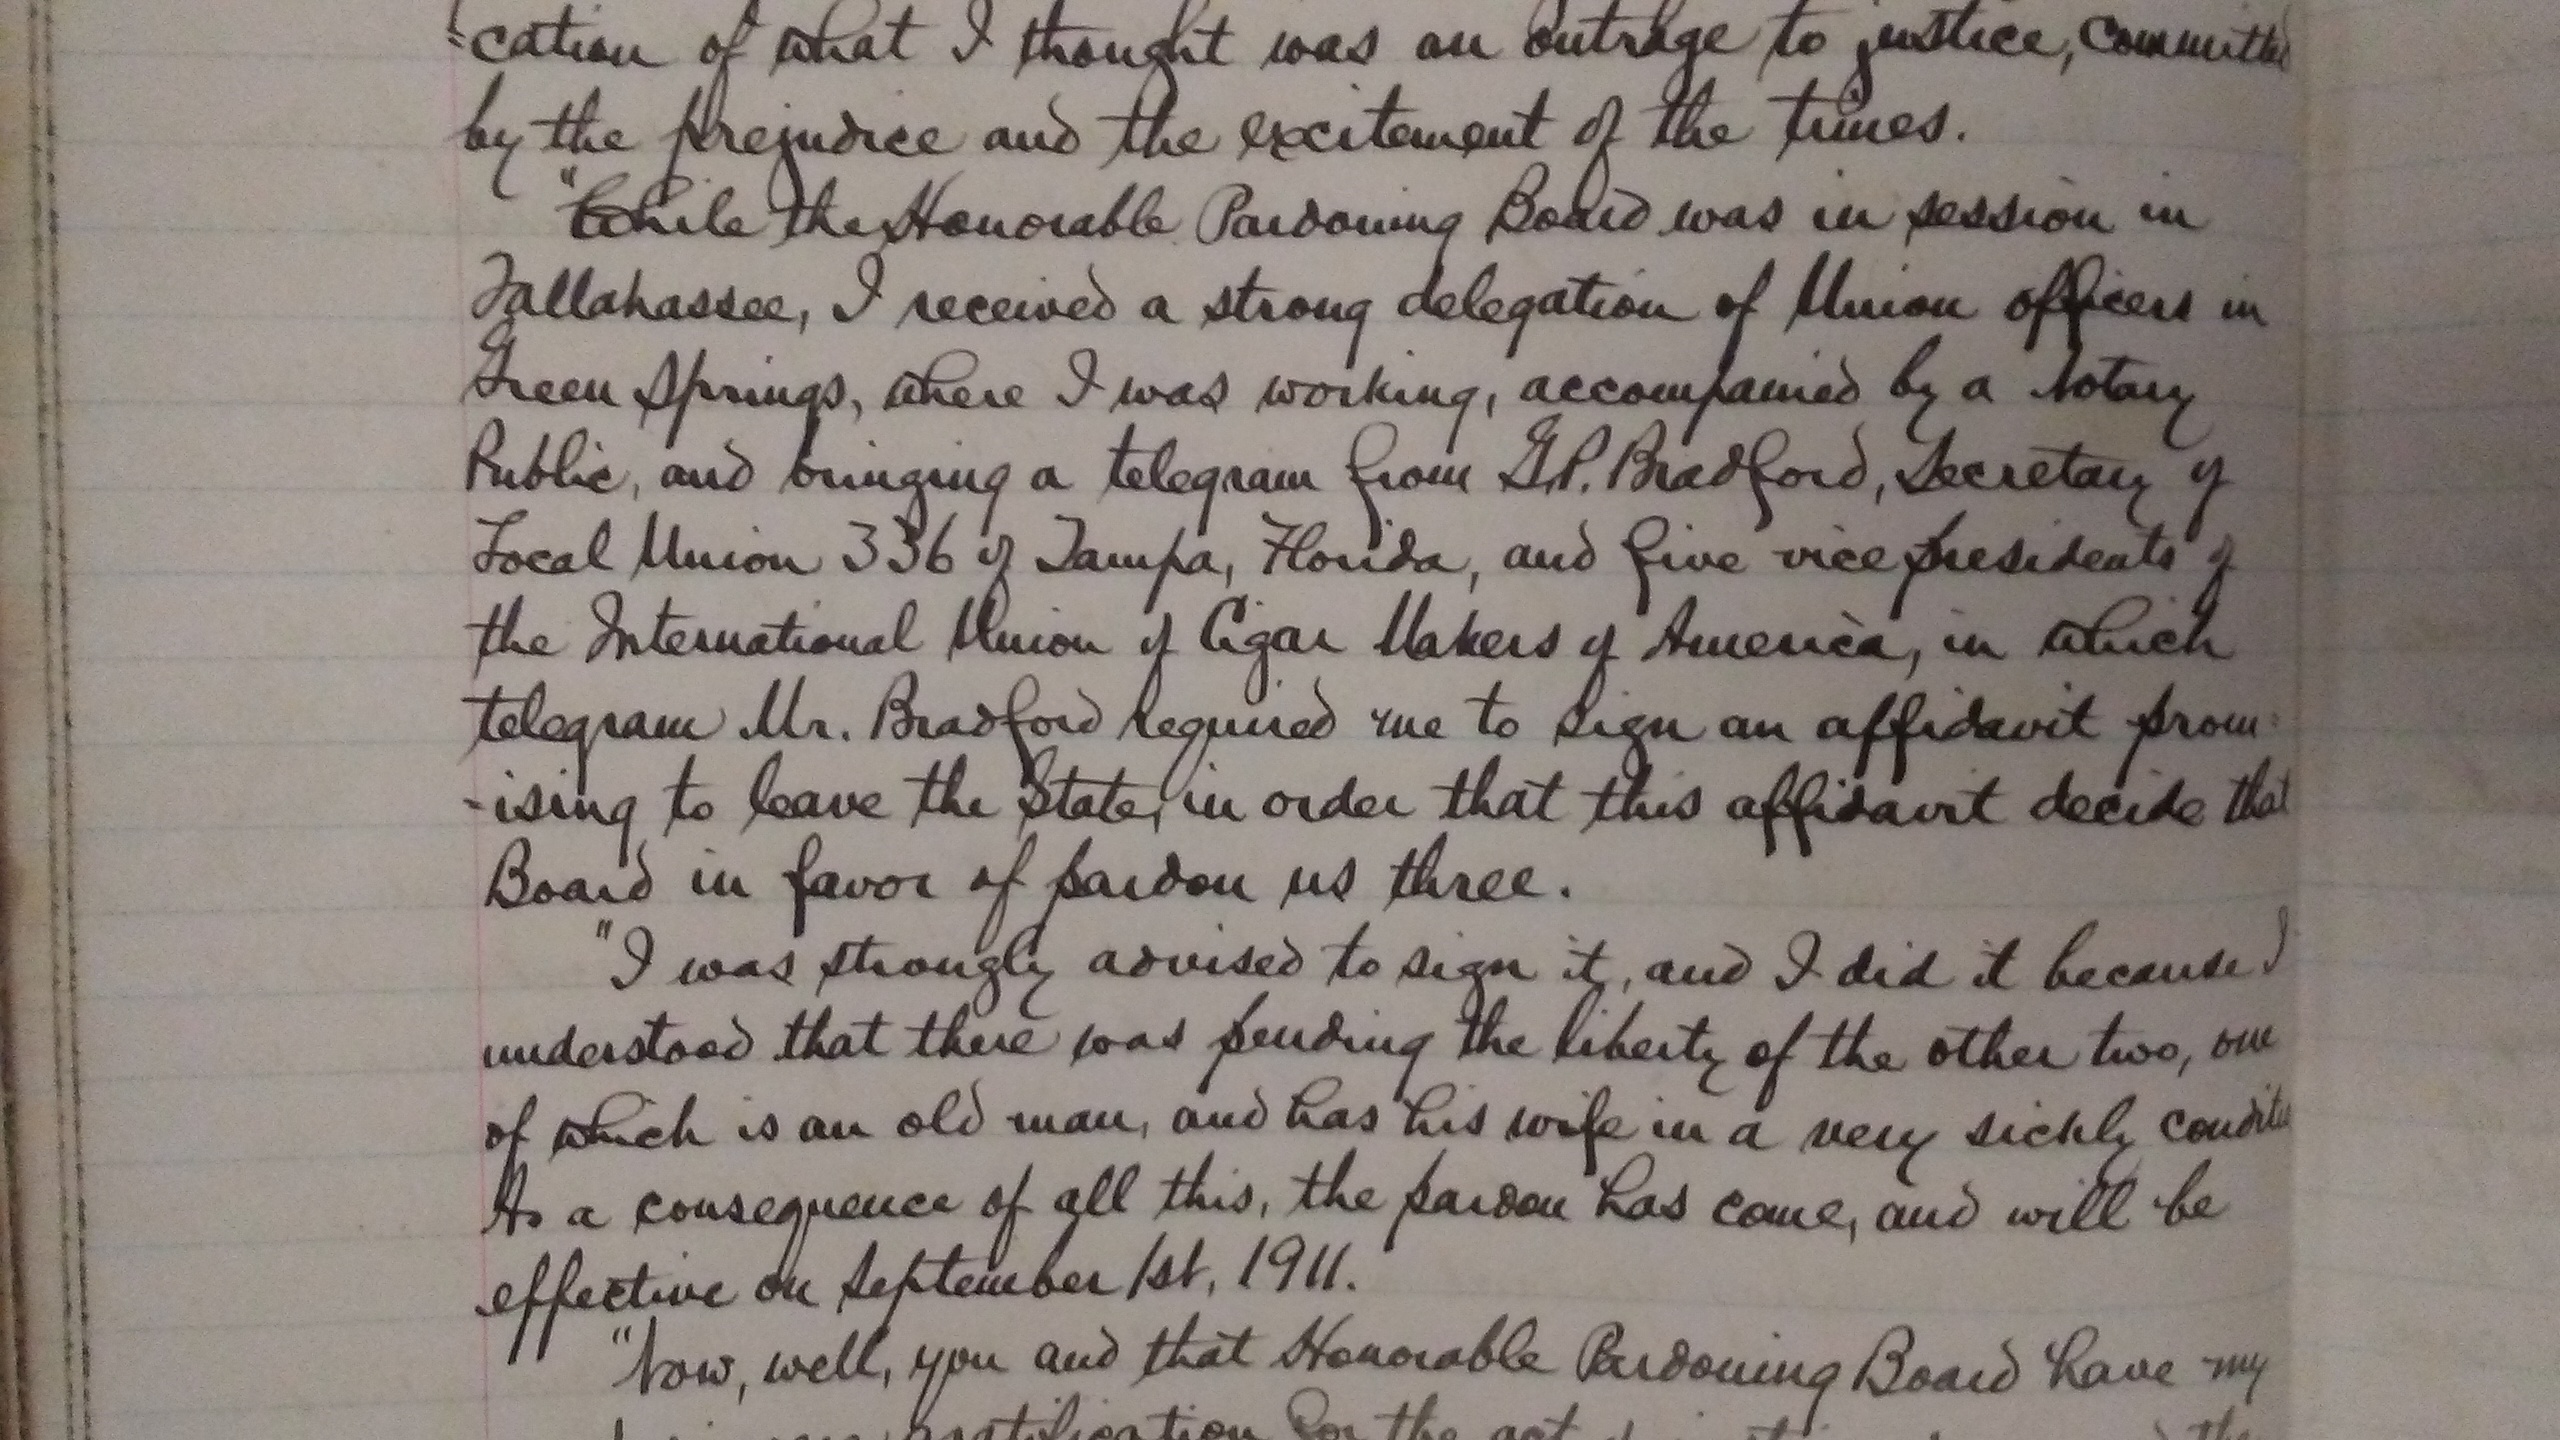 "cation of what I thought was an outrage to justice, committed
by the prejudice and the excitement of the times.
"While the Honorable Pardoning Board was in session in
Tallahassee, I received a strong delegation of Union officers in
Green Springs, where I was working, accompanied by a Notary
Public, and bringing a telegram from G.P. Bradford, Secretary of
Local Union 336 of Tampa, Florida, and five vice presidents of
the International Union of Cigar Makers of America, in which
telegram Mr. Bradford required me to sign an affidavit prom-
-ising to leave the State, in order that this affidavit decide that
Board in favor of pardon us three.
"I was strongly advised to sign it, and I did it because I
understood that there was pending the liberty of the other two, one
of which is an old man, and has his wife in a very sickly condition
As a consequence of all this, the pardon has come, and will be
effective on September 1st, 1911.
"Now, well, you and that Honorable Pardoning Board have my